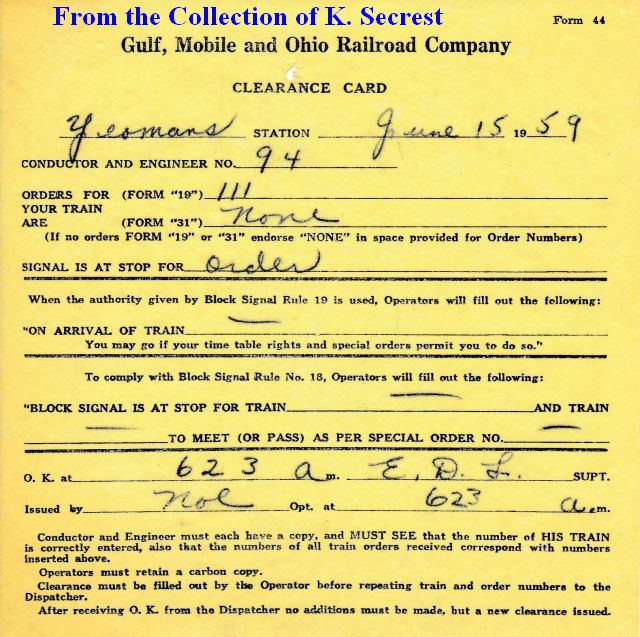 From the Collection of K. Secrest
Form 44
Gulf, Mobile and Ohio Railroad Company
CLEARANCE CARD
Yeomans STATION June 15 1959
CONDUCTOR AND ENGINEER NO. 94
ORDERS FOR (FORM "19") 111
YOUR TRAIN
ARE (FORM "31") None
(If no orders FORM "19" or "31" endorse "NONE" in space provided for Order Numbers)
SIGNAL IS AT STOP FOR order
When the authority given by Block Signal Rule 19 is used, Operators will fill out the following:
"ON ARRIVAL OF TRAIN
You may go if your time table rights and special orders permit you to do so."
To comply with Block Signal Rule No. 18, Operators will fill out the following:
"BLOCK SIGNAL IS AT STOP FOR TRAIN AND TRAIN
TO MEET (OR PASS) AS PER SPECIAL ORDER NO.
O. K. at 623 a m. E. D. L. SUPT.
Issued by Nol Opt. at 623 a.m.
Conductor and Engineer must each have a copy, and MUST SEE that the number of HIS TRAIN
is correctly entered, also that the numbers of all train orders received correspond with numbers
inserted above.
Operators must retain a carbon copy.
Clearance must be filled out by the Operator before repeating train and order numbers to the
Dispatcher.
After receiving O. K. from the Dispatcher no additions must be made, but a new clearance issued.